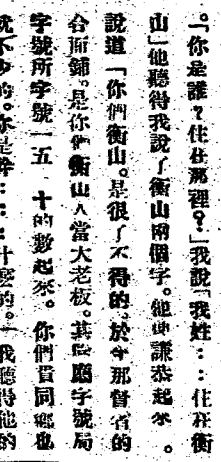 。「你是誰？住在那裡？」我說「我姓：：住在衡
山」他聽得我說了衡山兩個字。他便謙恭起來。
說道「你們衡山。是很了不得的、於今那督省的
合面鋪。是你們衡山人當大老板。其餘應字號局
字號所字號一五一十的數起來。你們貴同鄉也
就不少的。你是幹：：：什麼的。」我聽得他的